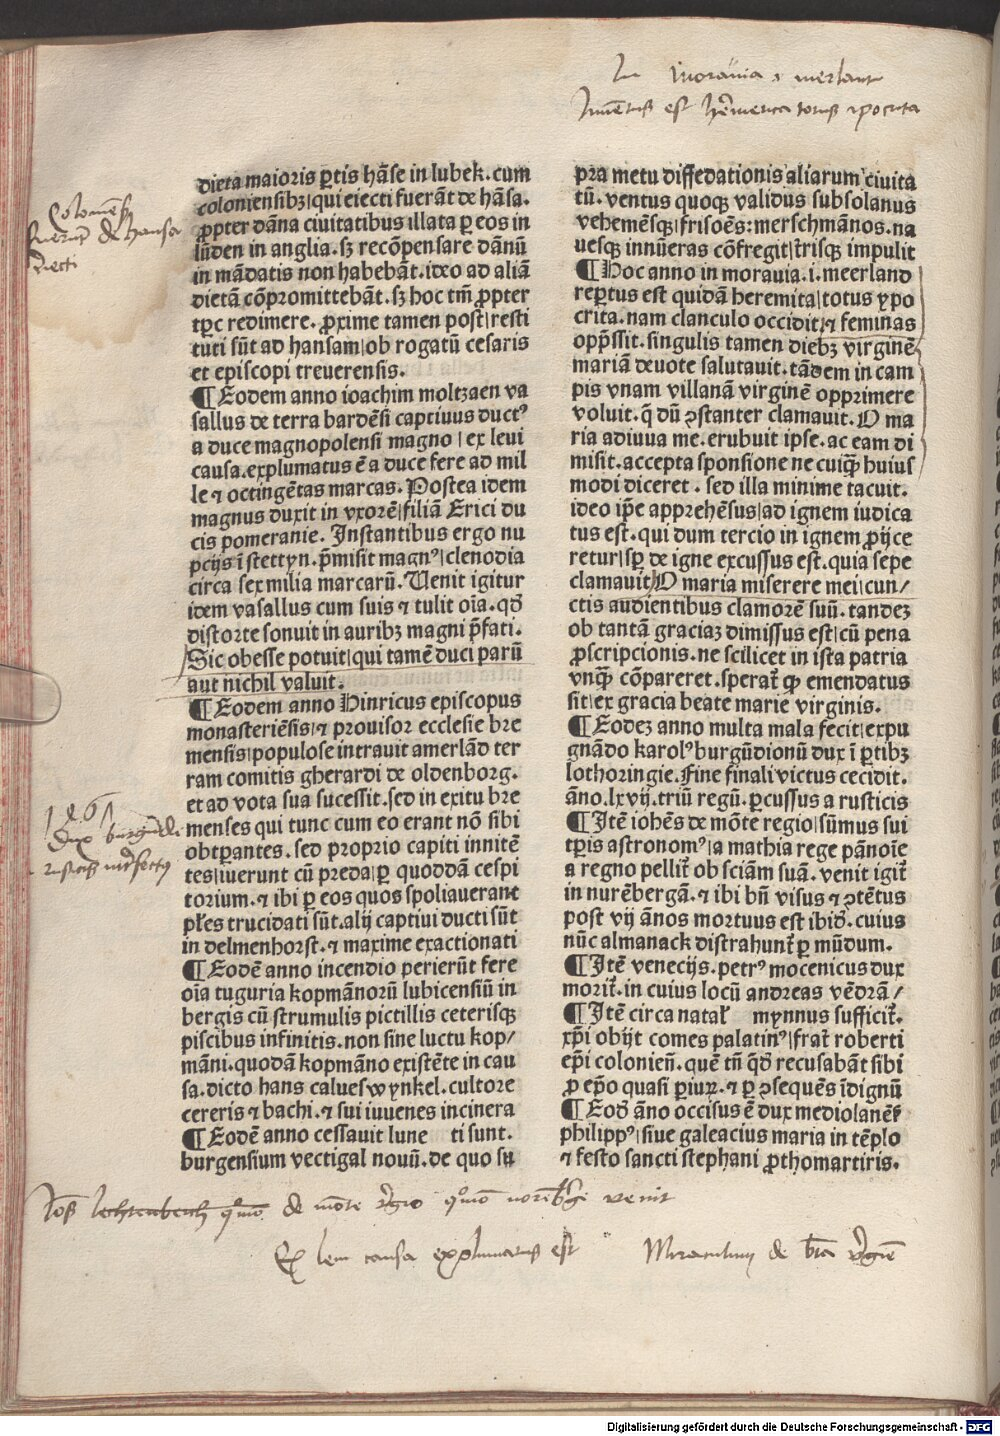 In Moravia i merlant
Inuentus est heremita totus ipocrita
Coloniens̄
fuerūt de hansa
eiecti
dieta maioris ꝑtis hāse in lubek. cum
coloniensibꝫ|qui eiecti fuerāt de hāsa.
ꝓpter dāna ciuitatibus illata ꝑ eos in
lūden in anglia. sꝫ recōpensare dānū
in mādatis non habebāt. ideo ad aliā
dietā cōpromittebāt. sꝫ hoc tm̄ ꝓpter
tꝑc redimere. ꝓxime tamen post|resti
tuti sūt ad hansam|ob rogatū cesaris
et episcopi treuerensis.
¶ Eodem anno ioachim moltzaen va
sallus de terra bardēsi captiuus ductꝰ
a duce magnopolensi magno | ex leui
causa. explumatus ē a duce fere ad mil
le ⁊ octingētas marcas. Postea idem
magnus duxit in vxorē|filiā Erici du
cis pomeranie. Instantibus ergo nu
pcijs ī stettyn. p̄misit magnꝰ|clenodia
circa sex milia marcarū. Uenit igitur
idem vasallus cum suis ⁊ tulit oīa. qd̄
distorte sonuit in auribꝫ magni p̄fati.
Sic obesse potuit|qui tamē duci parū
aut nichil valuit.
¶ Eodem anno Hinricus episcopus
monasteriēsis|⁊ prouisor ecclesie bre
mensis|populose intrauit amerlād ter
ram comitis gherardi de oldenborg.
et ad vota sua sucessit. sed in exitu bre
menses qui tunc cum eo erant nō sibi
obtꝑantes. sed proprio capiti innitē
tes|iuerunt cū preda|ꝑ quoddā cespi
torium. ⁊ ibi ꝑ eos quos spoliauerant
pl̄es trucidati sūt. alij captiui ducti sūt
in delmenhorst. ⁊ maxime exactionati
¶ Eodē anno incendio perierūt fere
oīa tuguria kopmānorū lubicensiū in
bergis cū strumulis pictillis ceterisqꝫ
piscibus infinitis. non sine luctu kop/
māni. quodā kopmāno existēte in cau
sa. dicto hans calueswynkel. cultore
cereris ⁊ bachi. ⁊ sui iuuenes incinera
¶ Eodē anno cessauit lune ti sunt.
burgensium vectigal nouū. de quo su
1467
Dux burgundie
rusticis interfectus
pra metu diffedationis aliarum ciuita
tū. ventus quoqꝫ validus subsolanus
vehemēsqꝫ|frisoēs: merschmānos. na
uesqꝫ innūeras cōfregit|tr̄isqꝫ impulit
¶ Hoc anno in morauia. i. meerland
reꝑtus est quidā heremita|totus ypo
crita. nam clanculo occidit|⁊ feminas
opp̄ssit. singulis tamen diebꝫ virginē
mariā deuote salutauit. tādem in cam
pis vnam villanā virginē opprimere
voluit. q̄ dū ꝯstanter clamauit. O ma
ria adiuua me. erubuit ipse. ac eam di
misit. accepta sponsione ne cuiqꝫ̄ huius
modi diceret. sed illa minime tacuit.
ideo ip̄e apprehēsus|ad ignem iudica
tus est. qui dum tercio in ignem ꝓijce
retur|sꝑ de igne excussus est. quia sepe
clamauit|O maria miserere mei|cun/
ctis audientibus clamorē suū. tandeꝫ
ob tantā graciaꝫ dimissus est|cū pena
ꝓscripcionis. ne scilicet in ista patria
vnqꝫ̄ cōpareret. sperat᷑ ꝙ emendatus
sit|ex gracia beate marie virginis.
¶ Eodeꝫ anno multa mala fecit|expu
gnādo karolꝰ burgūdionū dux ī ꝑtibꝫ
lothoringie. Fine finali victus cecidit.
āno. lxvij. triū regū. ꝑcussus a rusticis
¶ Itē ioh̄es de mōte regio|sūmus sui
tꝑis astronomꝰ|a mathia rege pānoīe
a regno pellit᷑ ob sciām suā. venit igit᷑
in nurēbergā. ⁊ ibi bn̄ visus ⁊ ꝯtētus
post vij annos mortuus est ibid̄. cuius
nūc almanack distrahunt᷑ ꝑ mūdum.
¶ Itē venecijs. petrꝰ mocenicus dux
morit᷑. in cuius locū andreas vēdrā/
¶ Itē circa natal̄ mynnus sufficit᷑.
xp̄i obijt comes palatinꝰ|frat᷑ roberti
ep̄i colonien̄. quē tn̄ q̄d̄ recusabāt sibi
ꝓ ep̄o quasi ꝑiurꝫ. ⁊ ꝑ ꝯsequēs īdignū
¶ Eod̄ āno occisus ē dux mediolanēs̄
philippꝰ|siue galeacius maria in tēplo
⁊ festo sancti stephani ꝓthomartiris.
Joh̄s lechtenberch quō de mōte regio quō norēberge venit
Ex leui causa explumatus est
Miraculum de bt̄a virgine
Digitalisierung gefördert durch die Deutsche Forschungsgemeinschaft - DFG